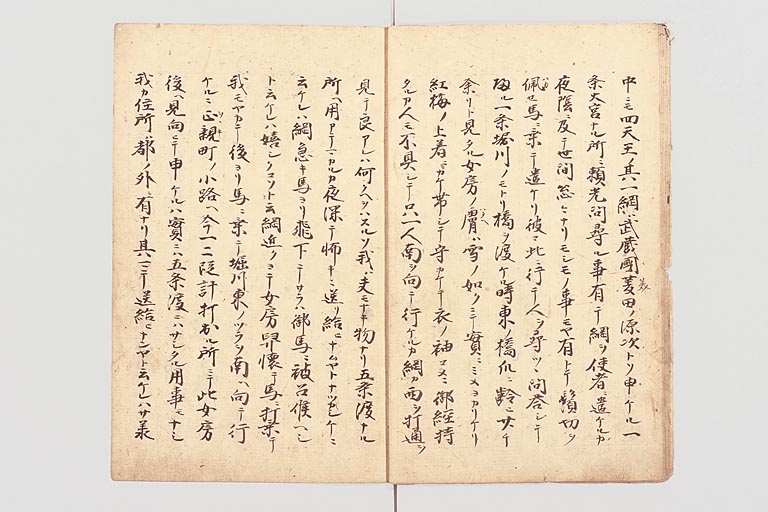 中ニモ四天王ノ其一綱ハ武蔵國美田ノ源次トソ申ケル一
条大宮ナル所ニ頼光聊尋ル事有テ綱ヲ使者ニ遣ケルカ
夜陰ニ及テ世間怱々ナリモシモノ事モヤ有トテ鬚切ヲ
佩セ馬ニ乗テ遣ケリ彼ニ此行テ人ヲ尋ツヽ問答シテ
帰ル一条堀川ノモトリ橋ヲ渡ケル時東ノ橋爪ニ齢ニ廿チ
余リト見タル女房ノ膚ハ雪ノ如クニテ實ニミメヨカリケリ
紅梅ノ上着ニカケ帯シテ守カケテ衣ノ袖コメニ御經持
タルカ人モ不具シテ只一人南ヲ向テ行ケルカ綱カ西ヲ打通ヲ
見テ良アレハ何クヘソハスルソ我ハ夫モナキ物ナリ五条渡ナル
所ヘ用アテマカルカ夜深テ怖キニ送リ給ヒナムヤトナツカシケニ
云ケレハ綱急キ馬ヨリ飛下テサラハ御馬ニ被召候ヘシ
ト云ケレハ嬉シクコソト云綱近クヨテ女房舁懐テ馬ニ打乗テ
我モヤカテ後ヨリ馬ニ乗テ堀川東ノツラヲ南ヘ向テ行
ケルニ正親町ノ小路ヘ今一二段計打出ル所ニテ此女房
後ヘ見向テ申ケルハ實ニハ五条渡ニハサシタル用事モナシ
我カ住所ハ都ノ外ニ有ナリ其ヘコソ送給ヒナンヤト云ケレハサ承